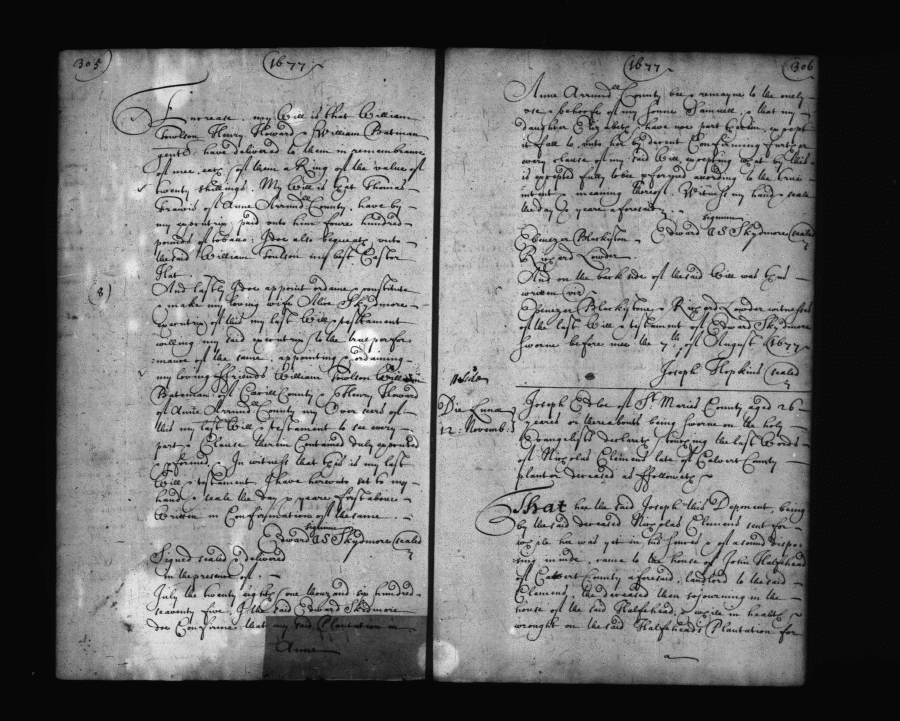 305
1677
Increase. my Will is that William
Toulson Henry Howard & William Bateman
gents. have delivered to them in remembrance
of mee, each of them a Ring of the value of
twenty shillings. My Will is that Thomas
Francis of Anne Arrundll County, have by
my executrix paid unto him foure hundred
pounds of tobacco, I doe also bequeath unto
the said William Toulson my last Castor
Hat
(8)
And lastly I doe appoint ordaine constitute
& make my loving wife Alice Skydmore
executrix of this my last Will & testament
willing my said executrix to the true perfor
mance of the same, appointing & ordaining
my loving ffriends William Toulson William
Bateman of County & Henry Howard
of Anne Arrundll County my Overseers of
this my last Will & testament to see every
part & Clause therein Contained duly executed
& pformed. In witness that this is my last
Will & testament, I have hereunto set to my
hand & seale the day & yeare first above
Written in Confirmation of the same
signum
Edward ES Skydmore (sealed
Signed sealed & delivered
in the presence of
July the twenty eighth one thousand six hundred
seaventy five, I the said Edward Skidmore
doe Confirme that my said Plantation in
Anne
1677
306
Anne Arrundll County bee & remayne to the onely
use & behoofe of my Sonne Samuell, & that my
daughter Elizabeth have noe part therein, except
it fall to, unto her by decent Confirming further
every clause of my said Will excepting what by this
is excepted fully to be pformed according to the true
intent & meaning thereof. Witness my hand & seale
the day & yeare aforesaid
signum
Ebenezer Blackiston Edward ES Skydmore (sealed
Richard Lowder
And on the back side of the said Will was thus
written viz
Ebenezer Blackystone & Richard Lowder witnesses
of the last Will & testament of Edward Skydmore
sworne before mee the 7th of August (1677
Joseph Hopkins (sealed
Die Lunae
12: Novemb:
Joseph Edloe of St Maries County aged 26
yeares or thereabouts being sworne on the holy
Evangelist declareth touching the last Words
of Nicholas Clemens late of Calvert County
planter deceased as ffolloweth
That hee the said Joseph this Deponent, being
by the said deceased Nicholas Clemens sent for
while hee was yet in his sences & of a sound dispo
sing minde, came to the house of John Halfehead
of Calvert County aforesaid, landlord to the said
Clemens, the deceased then sojourning in the
house of the said Halfehead, & while in health
wrought on the said Halfeheads Plantation for
a